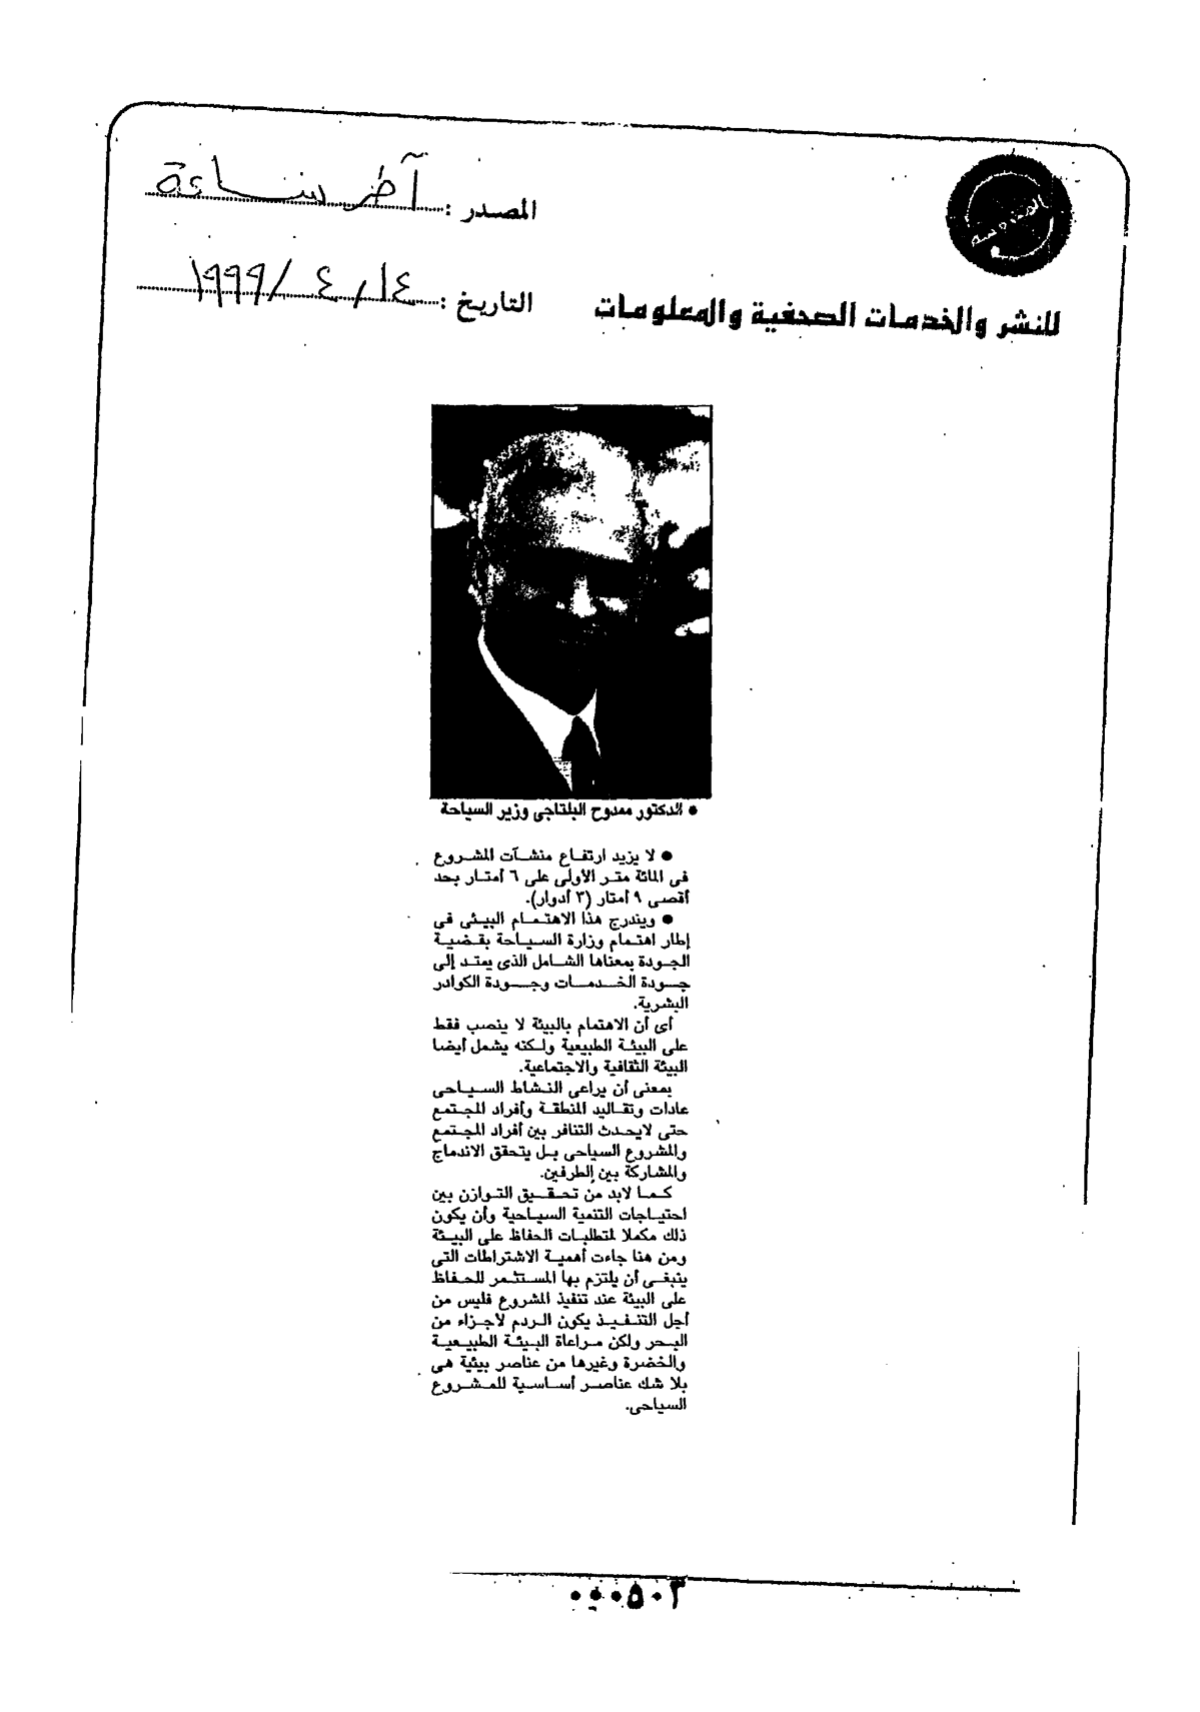 المصدر : آخر ساعة
للنشر والخدمات الصحفية والمعلومات
التاريخ : ١٤ / ٤ / ١٩٩٩
● الدكتور ممدوح البلتاجى وزير السياحة
● لا يزيد ارتفاع منشآت المشروع
فى المائة متر الأولى على ٦ أمتار بحد
أقصى ٩ أمتار (٣ أدوار).
● ويندرج هذا الاهتمام البيئى فى
إطار اهتمام وزارة السياحة بقضية
الجودة بمعناها الشامل الذى يمتد إلى
جودة الخدمات وجودة الكوادر
البشرية.
أى أن الاهتمام بالبيئة لا ينصب فقط
على البيئة الطبيعية ولكنه يشمل أيضا
البيئة الثقافية والاجتماعية.
بمعنى أن يراعى النشاط السياحى
عادات وتقاليد المنطقة وأفراد المجتمع
حتى لايحدث التنافر بين أفراد المجتمع
والمشروع السياحى بل يتحقق الاندماج
والمشاركة بين الطرفين.
كما لابد من تحقيق التوازن بين
احتياجات التنمية السياحية وأن يكون
ذلك مكملا لمتطلبات الحفاظ على البيئة
ومن هنا جاءت أهمية الاشتراطات التى
ينبغى أن يلتزم بها المستثمر للحفاظ
على البيئة عند تنفيذ المشروع فليس من
أجل التنفيذ يكون الردم لأجزاء من
البحر ولكن مراعاة البيئة الطبيعية
والخضرة وغيرها من عناصر بيئية هى
بلا شك عناصر أساسية للمشروع
السياحى.
٠٠٠٥٠٣